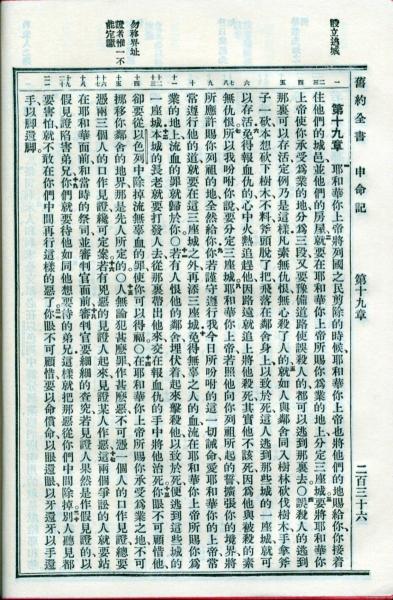 設立逃城
勿移界址
證者惟一不
能定讞
舊約全書 申命記 第十九章 二百三十六
第十九章 耶和華你上帝將列國之民剪除的時候耶和華你上帝也將他們的地賜給你你接着
住他們的城邑並他們的房屋就要在耶和華你上帝所賜你爲業的地上分定三座城要將耶和華你
上帝使你承受爲業的地分爲三段又要豫備道路使誤殺人的都可以逃到那裏去○誤殺人的逃到
那裏可以存活定例乃是這樣凡素無仇恨無心殺了人的就如人與鄰舍同入樹林砍伐樹木手拿斧
子一砍本想砍下樹木不料斧頭脫了把飛落在鄰舍身上以致於死這人逃到那些城的一座城就可
以存活免得報血仇的心中火熱追趕他因路遠就追上將他殺死其實他不該死因爲他與被殺的素
無仇恨所以我吩咐你說要分定三座城耶和華你上帝若照他向你列祖所起的誓擴張你的境界將
所應許賜你列祖的地全然給你你若謹守遵行我今日所吩咐的這一切誡命愛耶和華你的上帝常
常遵行他的道就要在這三座城之外再添三座城免得無辜之人的血流在耶和華你上帝所賜你爲
業的地上流血的罪就歸於你○若有人恨他的鄰舍埋伏着起來擊殺他以致於死便逃到這些城的
一座城本城的長老就要打發人去從那裏帶出他來交在報血仇的手中將他治死你眼不可顧惜他
卻要從以色列中除掉流無辜血的罪使你可以得福○在耶和華你上帝所賜你承受爲業之地不可
挪移你鄰舍的地界那是先人所定的○人無論犯甚麽罪作甚麽惡不可憑一個人的口作見證總要
憑兩三個人的口作見證纔可定案若有兇惡的見證人起來見證某人作惡這兩個爭訟的人就要站
在耶和華面前和當時的祭司並審判官面前審判官要細細的查究若見證人果然是作假見證的以
假見證陷害弟兄你們就要待他如同他想要待的弟兄這樣就把那惡從你們中間除掉別人聽見都
要害怕就不敢在你們中間再行這樣的惡了你眼不可顧惜要以命償命以眼還眼以牙還牙以手還
手以脚還脚